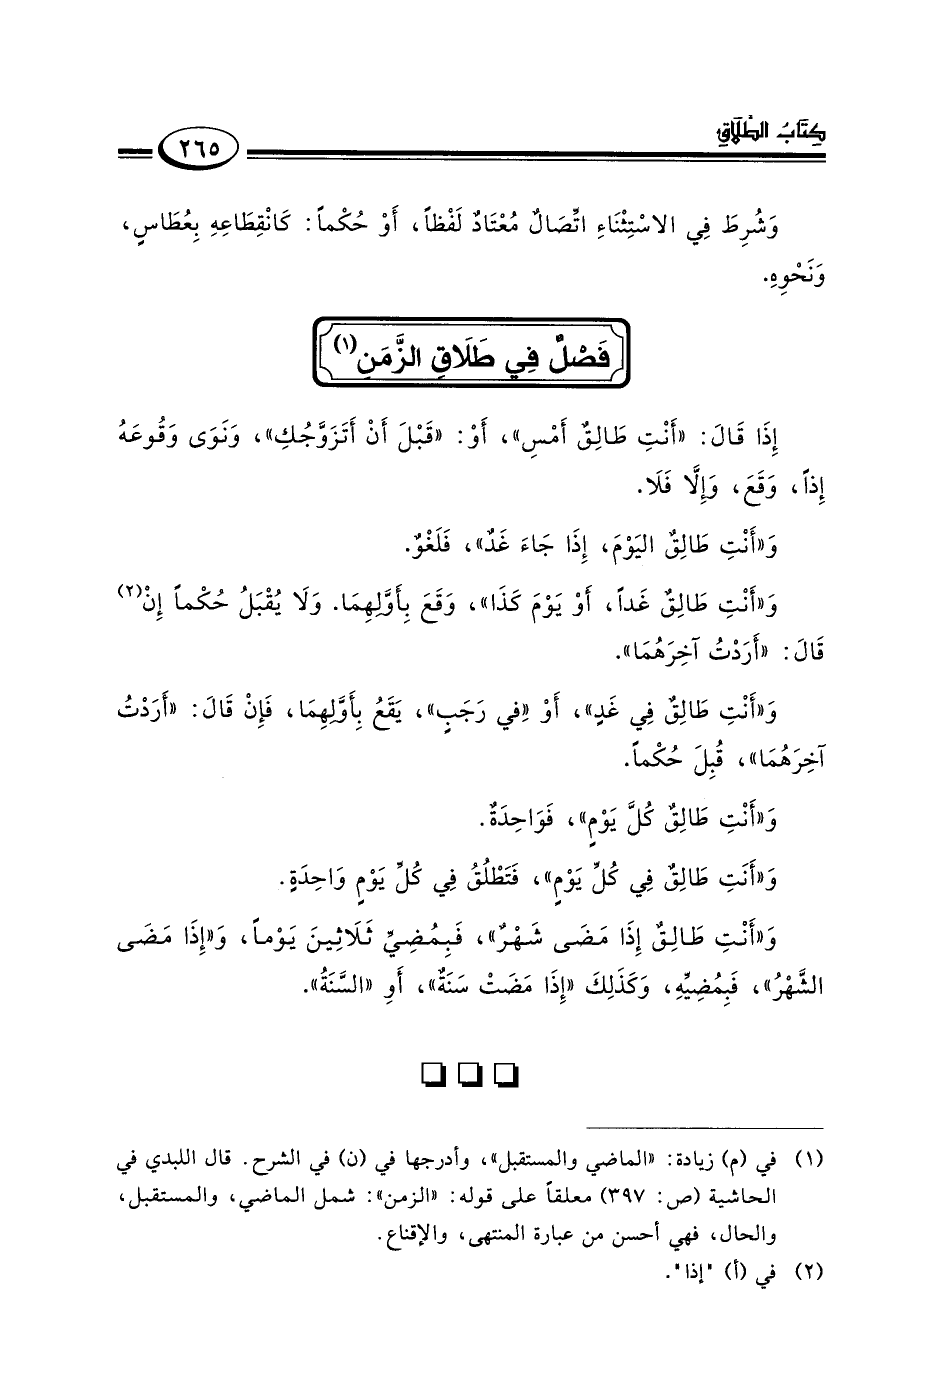 كِتَابُ الطَّلَاقِ
٢٦٥
وَشُرِطَ فِي الاسْتِثْنَاءِ اتِّصَالٌ مُعْتَادٌ لَفْظاً، أَوْ حُكْماً: كَانْقِطَاعِهِ بِعُطَاسٍ،
وَنَحْوِهِ.
فَصْلٌ فِي طَلَاقِ الزَّمَنِ(١)
إِذَا قَالَ: «أَنْتِ طَالِقٌ أَمْسِ»، أَوْ: «قَبْلَ أَنْ أَتَزَوَّجُكِ»، وَنَوَى وَقُوعَهُ
إِذاً، وَقَعَ، وَإِلَّا فَلَا.
وَ«أَنْتِ طَالِقٌ اليَوْمَ، إِذَا جَاءَ غَدٌ»، فَلَغْوٌ.
وَ«أَنْتِ طَالِقٌ غَداً، أَوْ يَوْمَ كَذَا»، وَقَعَ بِأَوَّلِهِمَا. وَلَا يُقْبَلُ حُكْماً إِنْ(٢)
قَالَ: «أَرَدْتُ آخِرَهُمَا».
وَ«أَنْتِ طَالِقٌ فِي غَدٍ»، أَوْ «فِي رَجَبٍ»، يَقَعُ بِأَوَّلِهِمَا، فَإِنْ قَالَ: «أَرَدْتُ
آخِرَهُمَا»، قُبِلَ حُكْماً.
وَ«أَنْتِ طَالِقٌ كُلَّ يَوْمٍ»، فَوَاحِدَةٌ.
وَ«أَنَتِ طَالِقٌ فِي كُلِّ يَوْمٍ»، فَتَطْلُقُ فِي كُلِّ يَوْمٍ وَاحِدَةٍ.
وَ«أَنْتِ طَالِقٌ إِذَا مَضَى شَهْرٌ»، فَبِمُضِيِّ ثَلَاثِينَ يَوْماً، وَ«إِذَا مَضَى
الشَّهْرُ»، فَبِمُضِيِّهِ، وَكَذَلِكَ «إِذَا مَضَتْ سَنَةٌ»، أَوِ «السَّنَةُ».
(١) في (م) زيادة: «الماضي والمستقبل»، وأدرجها في (ن) في الشرح. قال اللبدي في
الحاشية (ص: ٣٩٧) معلقاً على قوله: «الزمن»: شمل الماضي، والمستقبل،
والحال، فهي أحسن من عبارة المنتهى، والإقناع.
(٢) في (أ) "إذا".